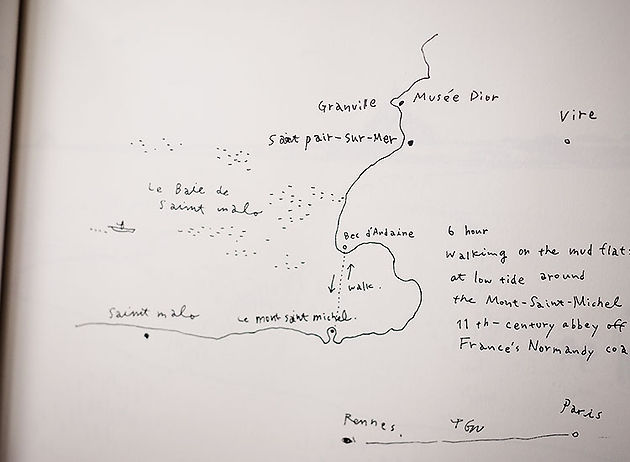 Granville
Musée Dior
Vire
Saint pair-sur-Mer
Le Baie de
Saint malo
Bec d'Andaine
walk.
6 hour
walking on the mud flat
at low tide around
the Mont-Saint-Michel
11th-century abbey off
France's Normandy coa
Sainit malo
Le mont saint michel.
Rennes.
TGV
Paris